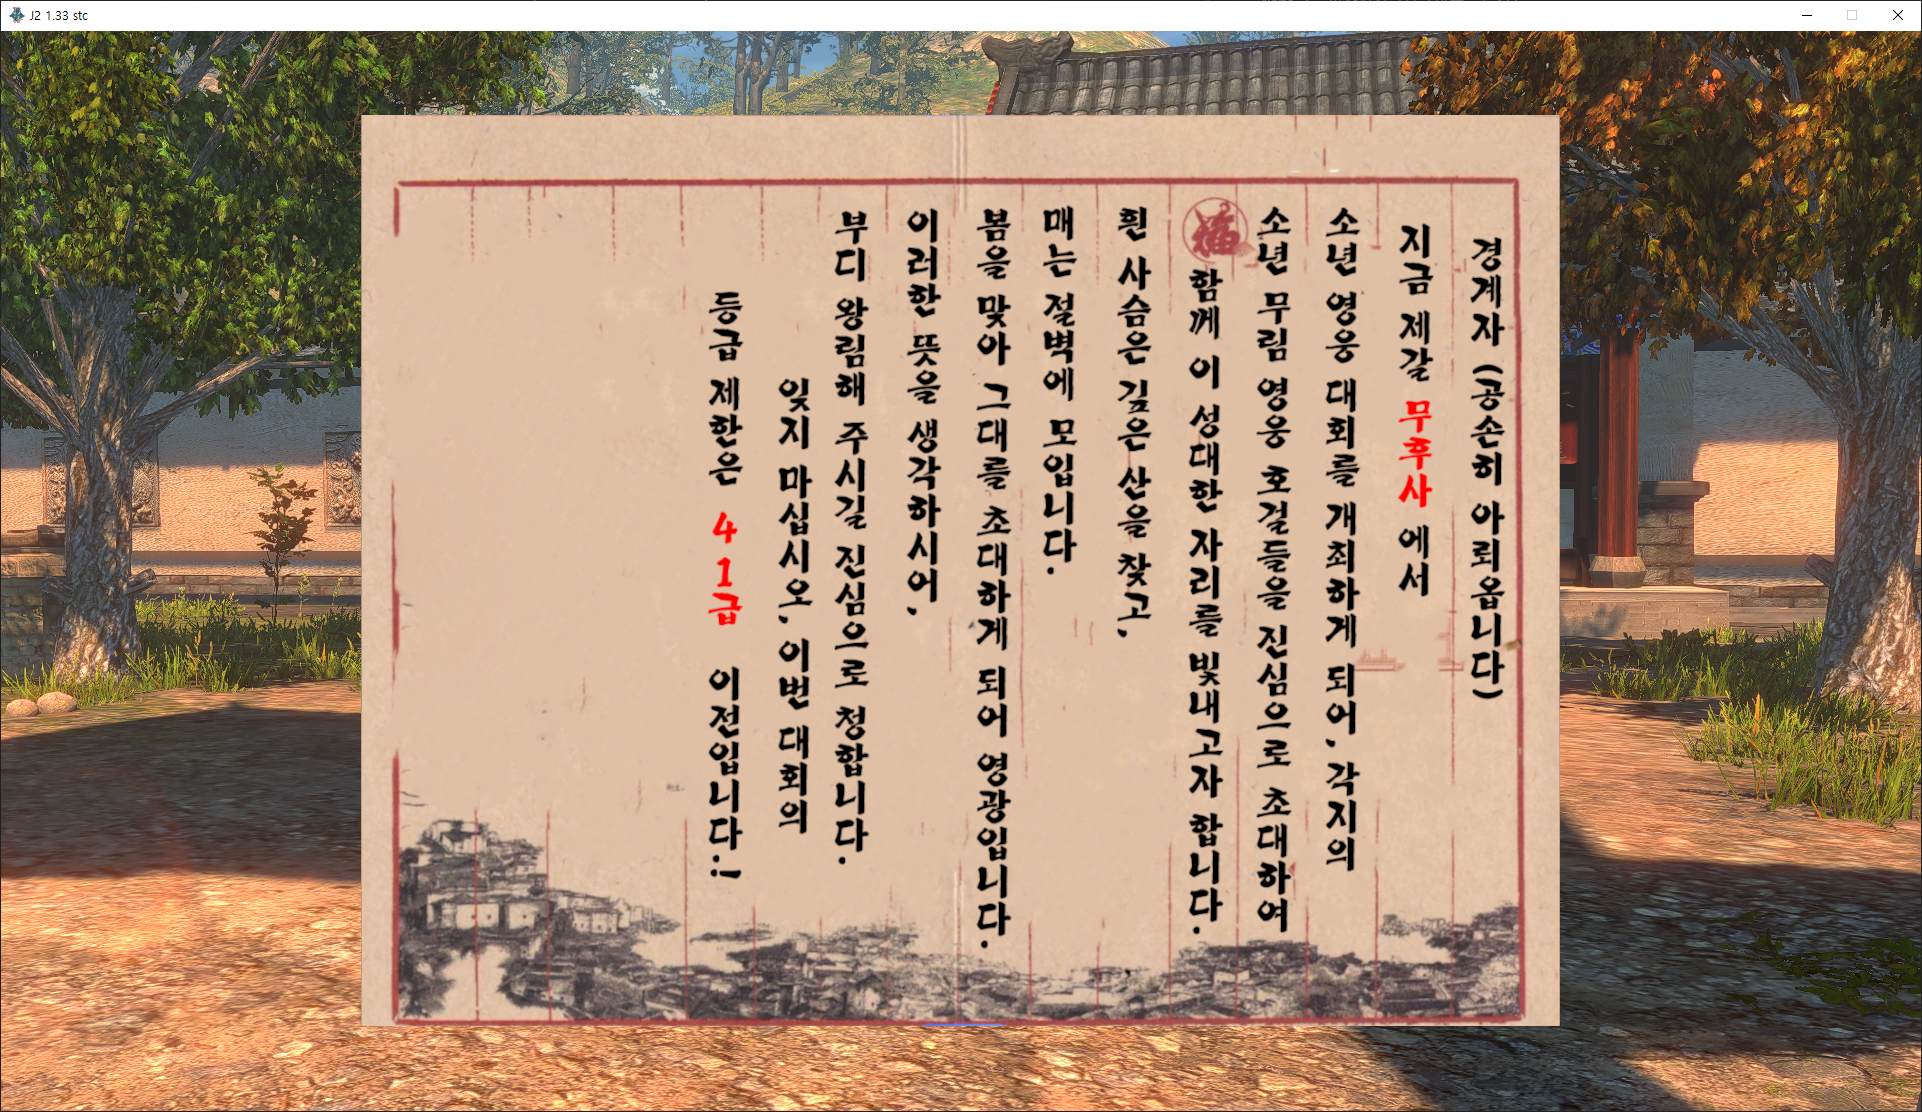 J2 1.33 stc
경계자 (공손히 아뢰옵니다)
지금 제갈 무후사 에서
소년 영웅 대회를 개최하게 되어, 각지의
소년 무림 영웅 호걸들을 진심으로 초대하여
福
함께 이 성대한 자리를 빛내고자 합니다.
흰 사슴은 깊은 산을 찾고,
매는 절벽에 모입니다.
봄을 맞아 그대를 초대하게 되어 영광입니다.
이러한 뜻을 생각하시어,
부디 왕림해 주시길 진심으로 청합니다.
잊지 마십시오, 이번 대회의
등급 제한은 41급 이전입니다.!